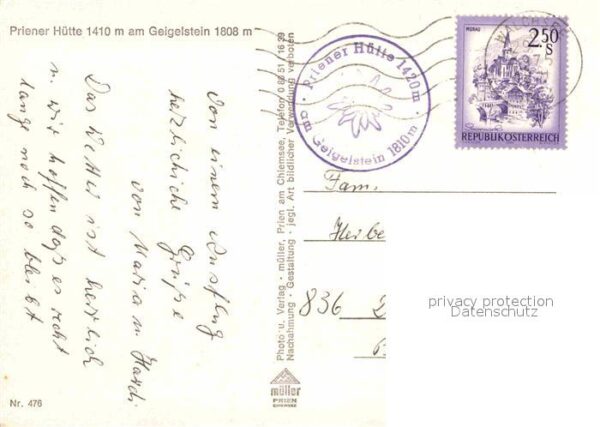 Priener Hütte 1410 m am Geigelstein 1808 m
Von einem Ausflug
herzliche
Grüße
von Maria u. Hardi
Das Wetter ist herrlich
u. wir hoffen daß es recht
lange noch so bleibt
Photo u. Verlag · müller, Prien am Chiemsee, Telefon 0 80 51 / 16 39
Nachahmung · Gestaltung · jegl. Art bildlicher Verwendung verboten
müller
PRIEN
CHIEMSEE
Nr. 476
Priener Hütte 1420m
am Geigelstein 1810m
MURAU
2.50
S
REPUBLIK ÖSTERREICH
Fam.
Herbe
836
privacy protection
Datenschutz